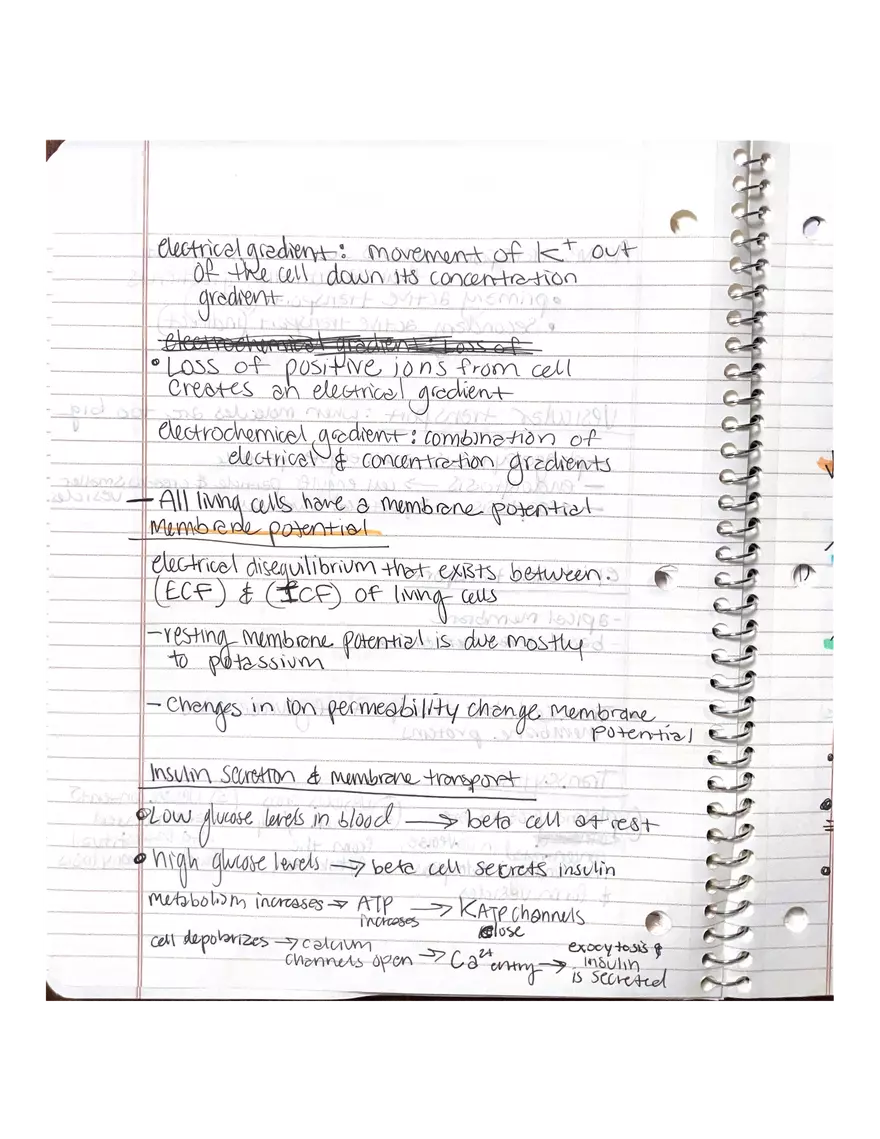 electrical gradient: movement of K+ out
of the cell down its concentration
gradient.
electrochemical gradient: Loss of
• Loss of positive ions from cell
creates an electrical gradient
electrochemical gradient: combination of
electrical & concentration gradients
— All living cells have a membrane potential
Membrane potential
electrical disequilibrium that exists between
(ECF) & (ICF) of living cells
- resting membrane potential is due mostly
to potassium
- Changes in ion permeability change membrane
potential
Insulin Secretion & membrane transport
• Low glucose levels in blood → beta cell at rest
• high glucose levels → beta cell secrets insulin
metabolism increases → ATP increases → KATP channels close
cell depolarizes → calcium channels open → Ca2+ entry → exocytosis & insulin is secreted